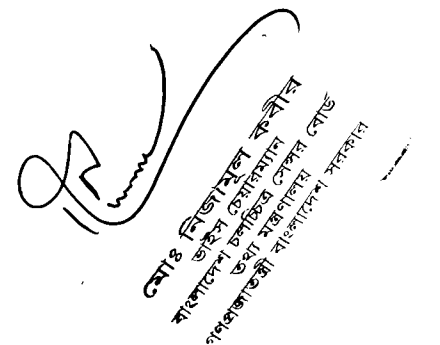 মোঃ নিজামূল কবীর
ভাইস চেয়ারম্যান
বাংলাদেশ চলচ্চিত্র সেন্সর বোর্ড
তথ্য মন্ত্রণালয়
গণপ্রজাতন্ত্রী বাংলাদেশ সরকার